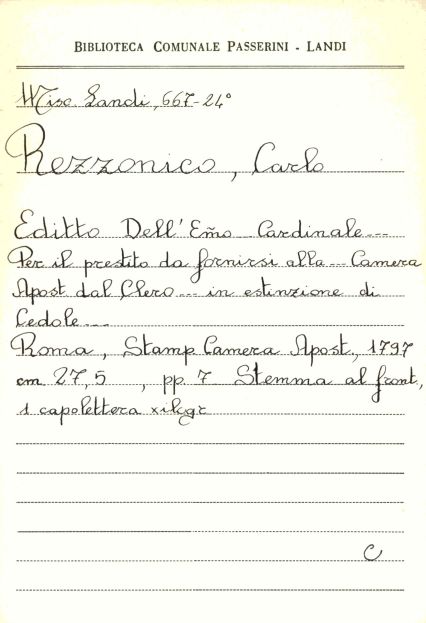 BIBLIOTECA COMUNALE PASSERINI - LANDI
Misc. Landi, 667-24°
Rezzonico, Carlo
Editto Dell'Em̃o Cardinale...
Per il prestito da fornirsi alla ... Camera
Apost dal Clero ... in estinzione di
Cedole...
Roma, Stamp Camera Apost., 1797
cm 27,5 , pp. 7 Stemma al front,
1 capolettera xilogr
C